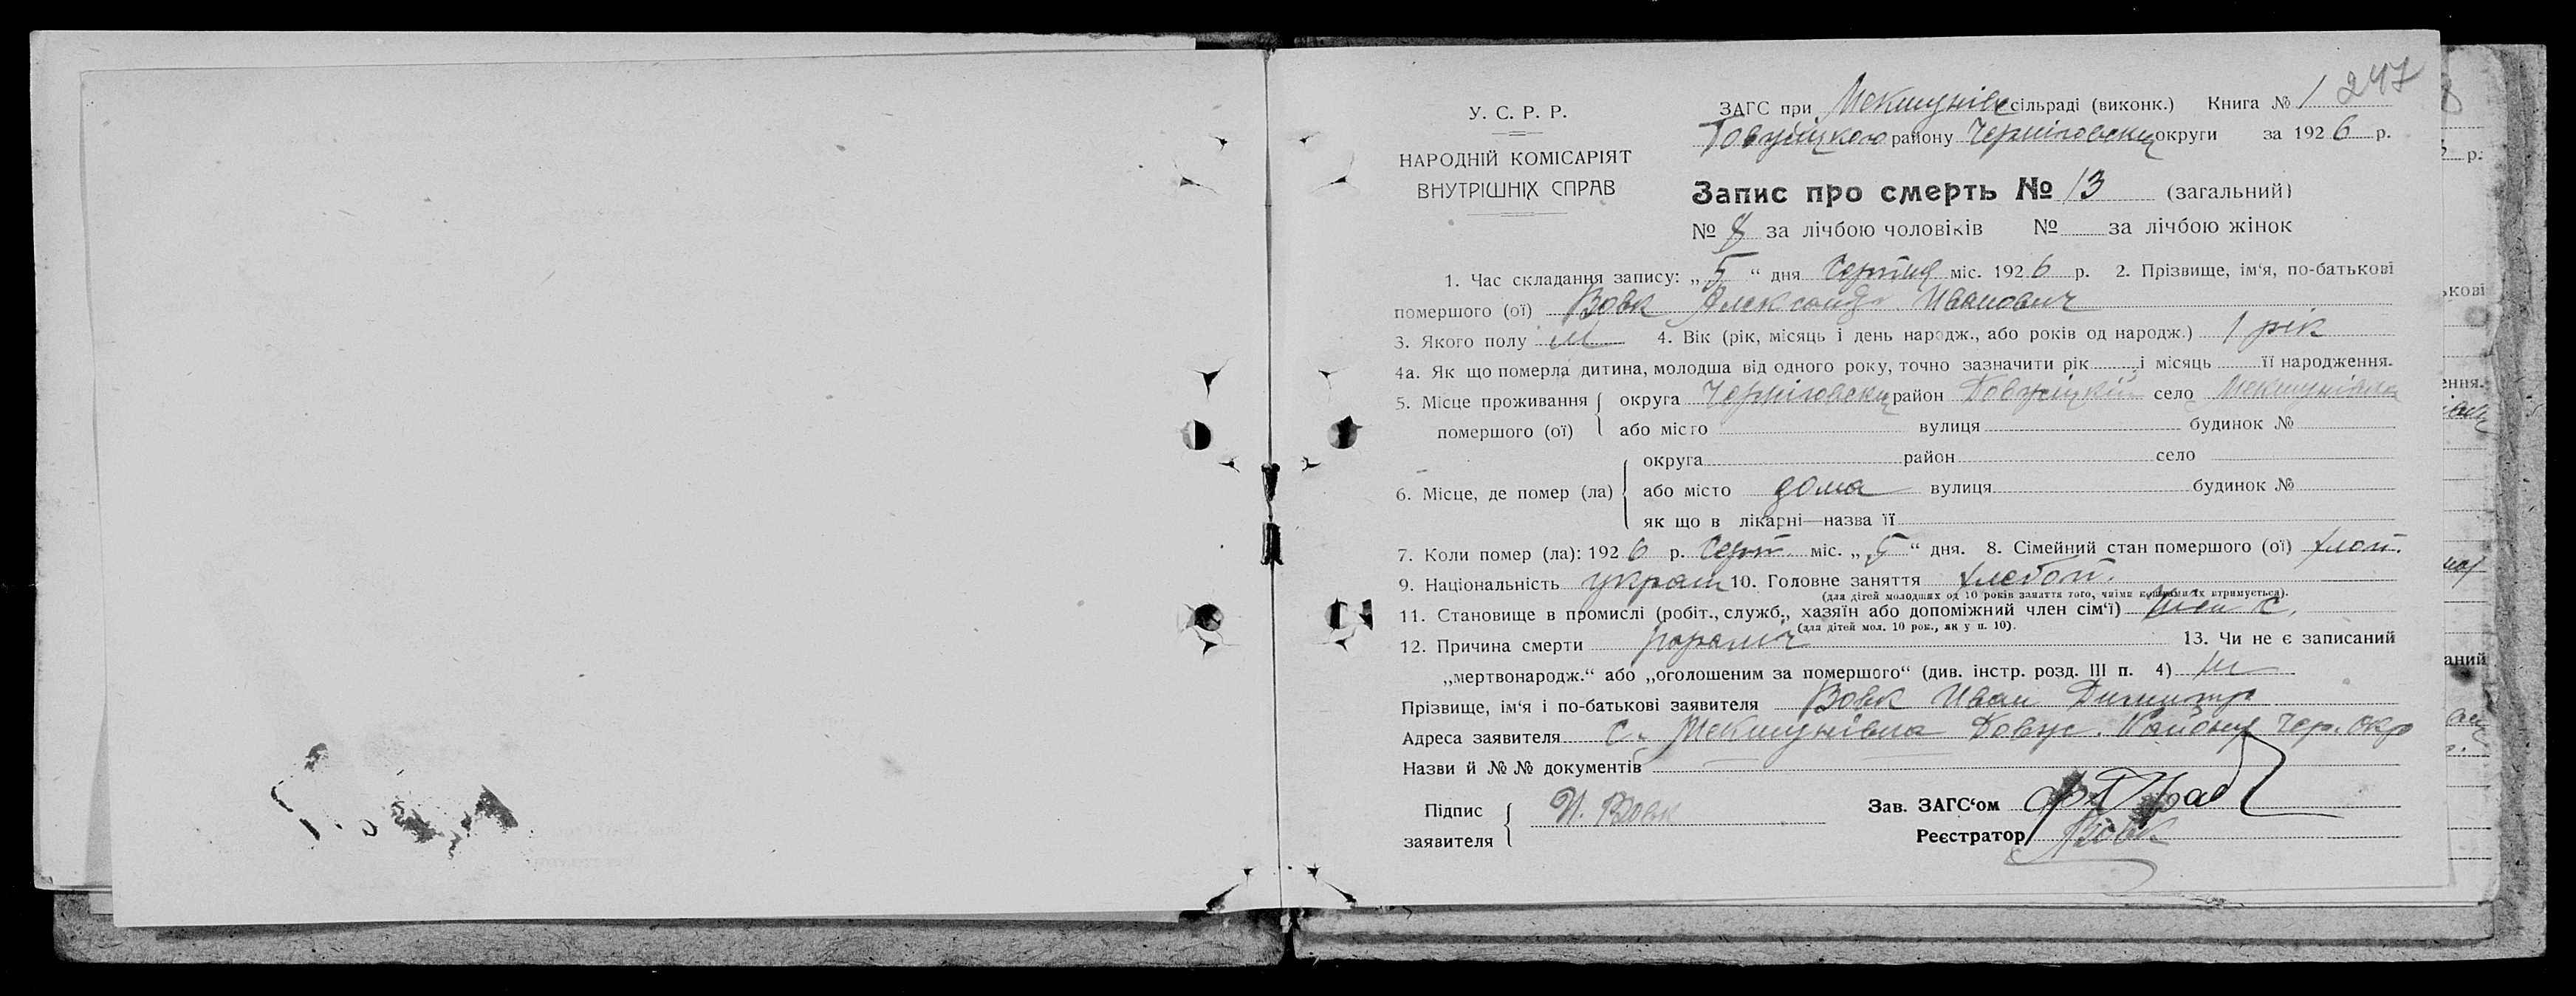 247
У. С. Р. Р.
НАРОДНІЙ КОМІСАРІЯТ
ВНУТРІШНІХ СПРАВ
ЗАГС при Мекшунівс сільраді (виконк.) Книга № 1
району Черніговськ округи за 1926 р.
Запис про смерть № 13 (загальний)
№ 8 за лічбою чоловіків № за лічбою жінок
1. Час складання запису: „5“ дня міс. 1926 р. 2. Прізвище, ім‘я, по-батькові
помершого (ої) Вовк Александр Иванович
3. Якого полу М 4. Вік (рік, місяць і день народж., або років од народж.) 1 рік
4а. Як що померла дитина, молодша від одного року, точно зазначити рік і місяць її народження.
5. Місце проживання помершого (ої) { округа Черніговськ район Довжицкій село Мекшунівка
або місто вулиця будинок №
6. Місце, де помер (ла) { округа район село
або місто дома вулиця будинок №
як що в лікарні—назва її
7. Коли помер (ла): 1926 р. міс. „5“ дня. 8. Сімейний стан помершого (ої) хлоп.
9. Національність украін 10. Головне заняття хлебоп.
(для дітей молодших од 10 років заняття того, чиїми коштами їх втримується).
11. Становище в промислі (робіт., служб., хазяїн або допоміжний член сім‘ї) член с.
(для дітей мол. 10 рок., як у п. 10).
12. Причина смерти параліч 13. Чи не є записаний
„мертвонародж.“ або „оголошеним за помершого“ (див. інстр. розд. III п. 4) ні
Прізвище, ім‘я і по-батькові заявителя Вовк Иван Димитр
Адреса заявителя с. Мекшунівка Довж. Району Чер. окр
Назви й №№ документів
Підпис заявителя { И. Вовк
Зав. ЗАГС‘ом
Реєстратор Вовк